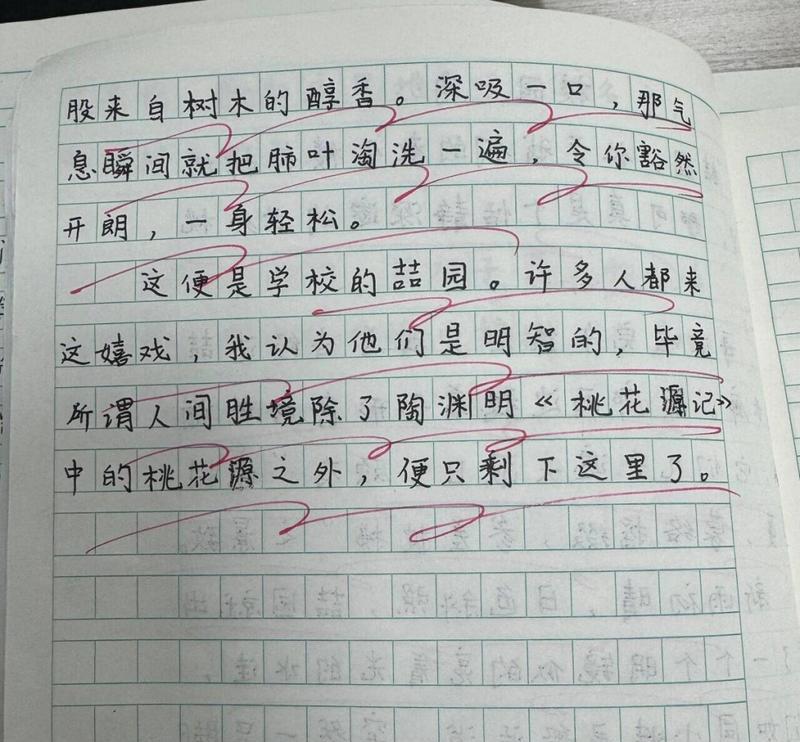 股来自树木的醇香。深吸一口，那气
息瞬间就把肺叶淘洗一遍，令你豁然
开朗，一身轻松。
这便是学校的喆园。许多人都来
这嬉戏，我认为他们是明智的，毕竟
所谓人间胜境除了陶渊明《桃花源记》
中的桃花源之外，便只剩下这里了。